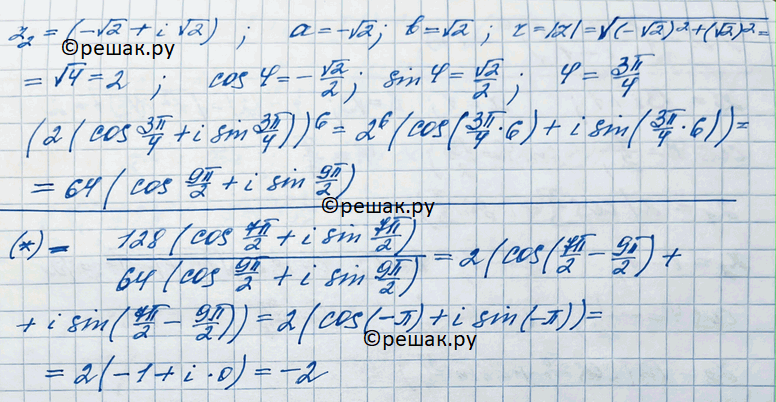 z₂ = (-√2 + i √2) ; a = -√2; b = √2 ; r = |z| = √((-√2)² + (√2)²) =
©решак.ру
= √4 = 2 ; cos φ = -√2/2; sin φ = √2/2; φ = 3π/4
(2 (cos 3π/4 + i sin 3π/4))⁶ = 2⁶ (cos(3π/4 · 6) + i sin(3π/4 · 6)) =
= 64 (cos 9π/2 + i sin 9π/2)
©решак.ру
(*) = 128 (cos 7π/2 + i sin 7π/2) / 64 (cos 9π/2 + i sin 9π/2) = 2 (cos(7π/2 - 9π/2) +
+ i sin(7π/2 - 9π/2)) = 2 (cos(-π) + i sin(-π)) =
©решак.ру
= 2 (-1 + i · 0) = -2